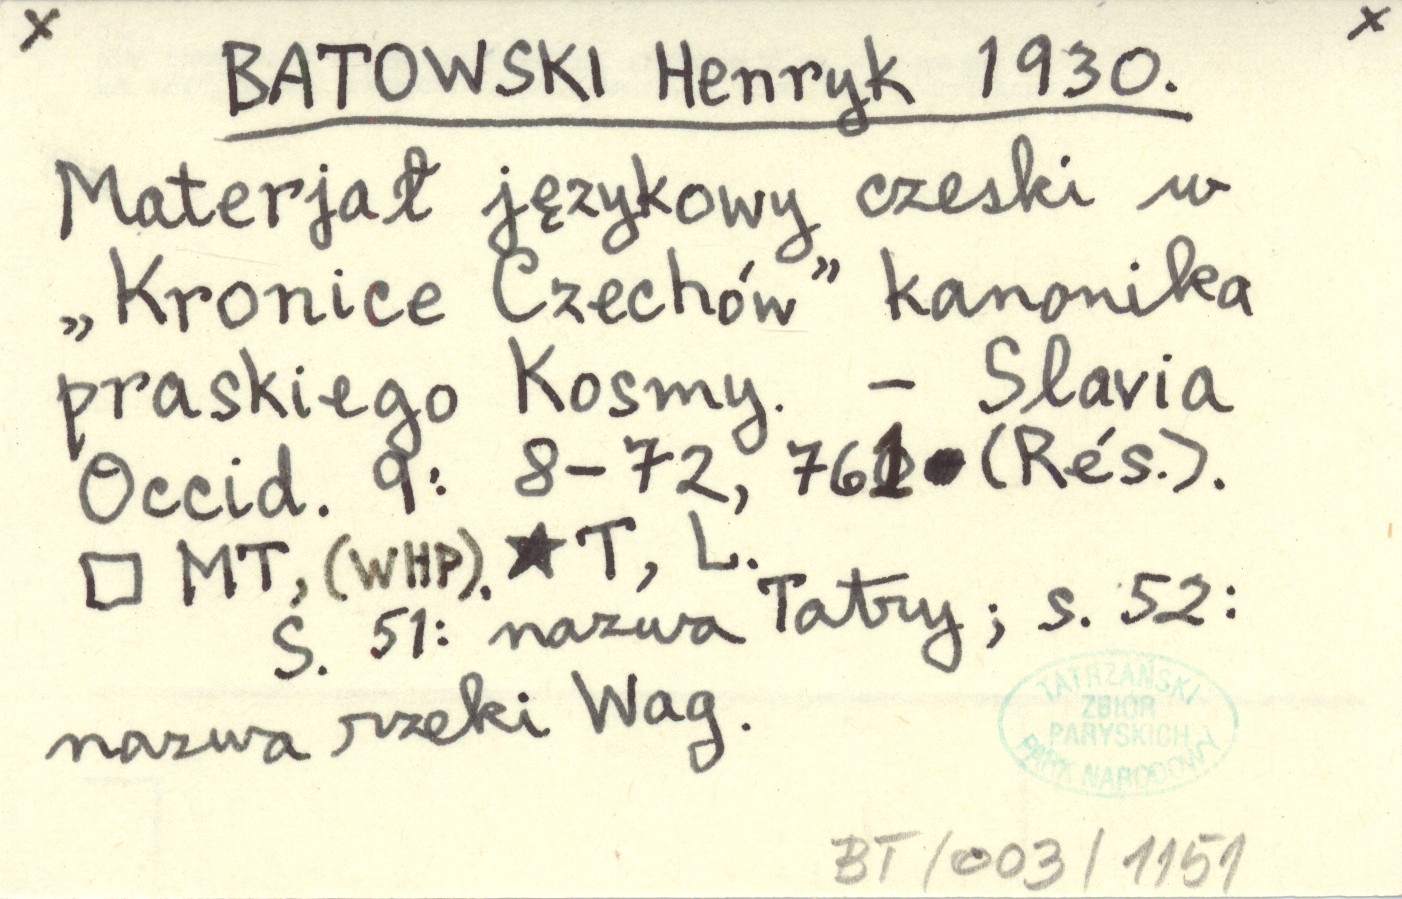 x x
BATOWSKI Henryk 1930.
Materjał językowy czeski w
„Kronice Czechów” kanonika
praskiego Kosmy. – Slavia
Occid. 9: 8–72, 761 (Rés.).
□ MT, (WHP). ★ T, L.
S. 51: nazwa Tatry; s. 52:
nazwa rzeki Wag.
TATRZAŃSKI
ZBIÓR
PARYSKICH
PARK NARODOWY
BT/003/1151